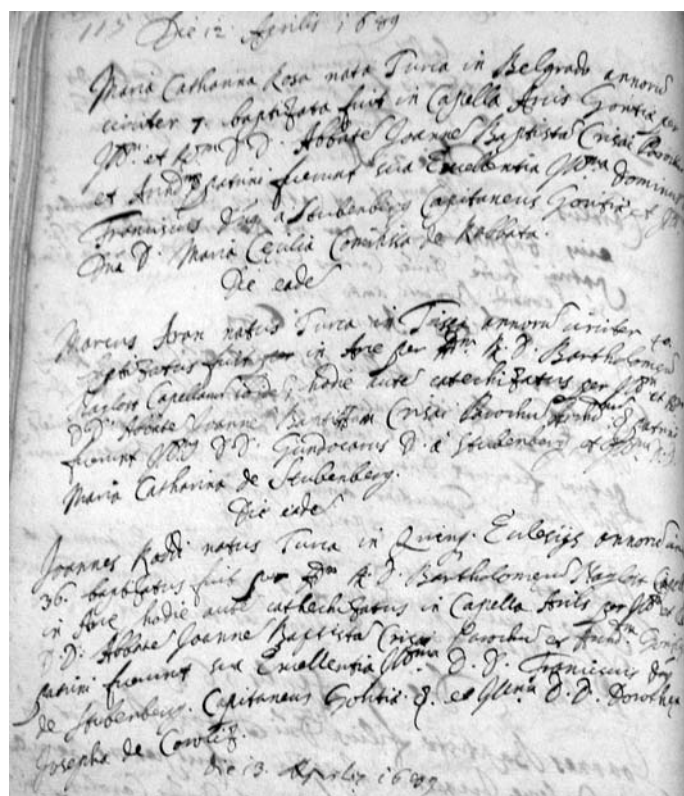 115 Die 12. Aprilis 1689
Maria Catharina Rosa nata Turca in Belgrado annorū
circiter 7. baptizata fuit in Capella Arcis Goritiæ per
Illm. et Rm. D. D. Abbatē Joannē Baptistā Crisai Paroch
et Archidm patrini fuerunt sua Excellentia Illma Dominus
Franciscus Vrg a Stubenberg Capitaneus Goritiæ et Illma
Dna D. Maria Cecilia Comitissa de Rabbata.
Die eadē
Marcus natus Turca in annorū circiter
baptizatus fuit in Arce per Adm. R. D. Bartholomeū
Capellanū hodie autē catechizatus per Illm et Rm
D. D. Abbatē Joannē Baptistā Crisai Parochū patrini
fuerunt Illmi D. D. Gundocarus D. a Stubenberg et Illma D. D.
Maria Catharina de Stubenberg.
Die eadē
Joannes natus Turca in Quinq. Eclesijs annorū
36. baptizatus fuit per Adm R. D. Bartholomeū
in Arce hodie autē cathechizatus in Capella Arcis per Illm et Rm
D. D. Abbatē Joannē Baptistā Crisai Parochū et Archidm Goritiæ
patrini fuerunt sua Excellentia Illma D. D. Franciscus Vrg
de Stubenberg. Capitaneus Goritiæ et Illma D. D. Dorothea
Josepha de
Die 13. Aprilis 1689